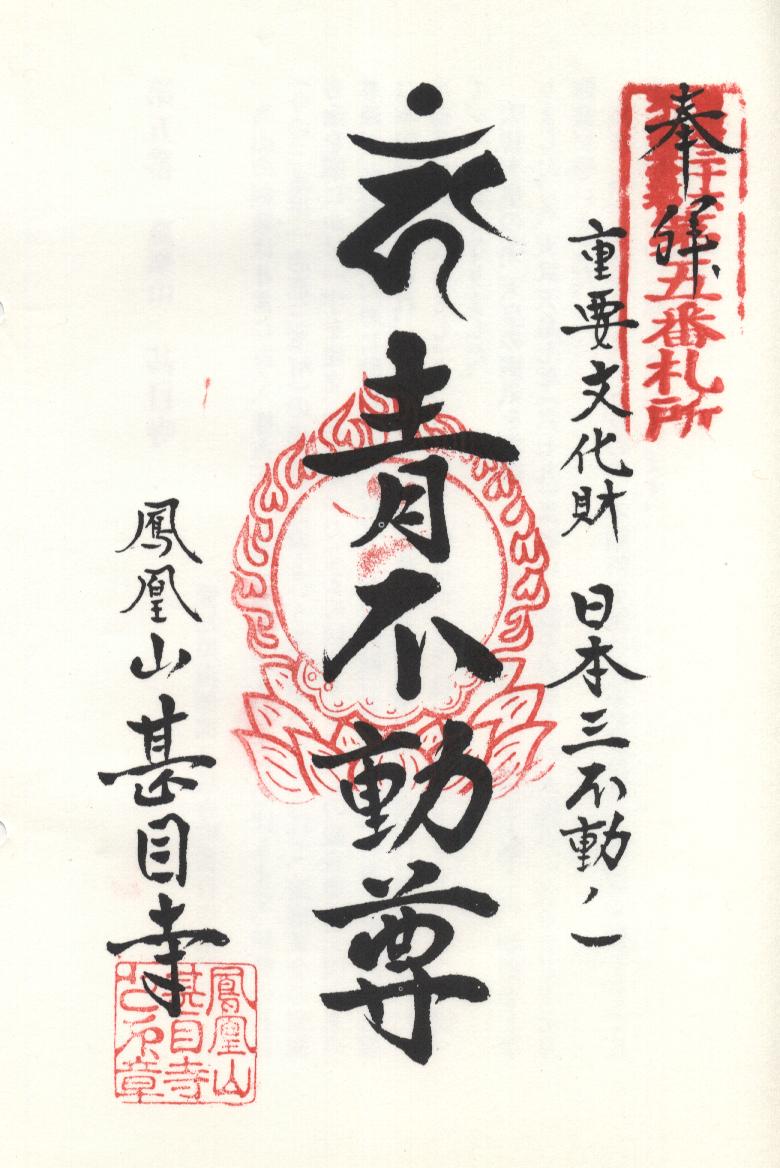 奉拝
五番札所
重要文化財 日本三不動ノ一
青不動尊
鳳凰山甚目寺
鳳凰山
甚目寺